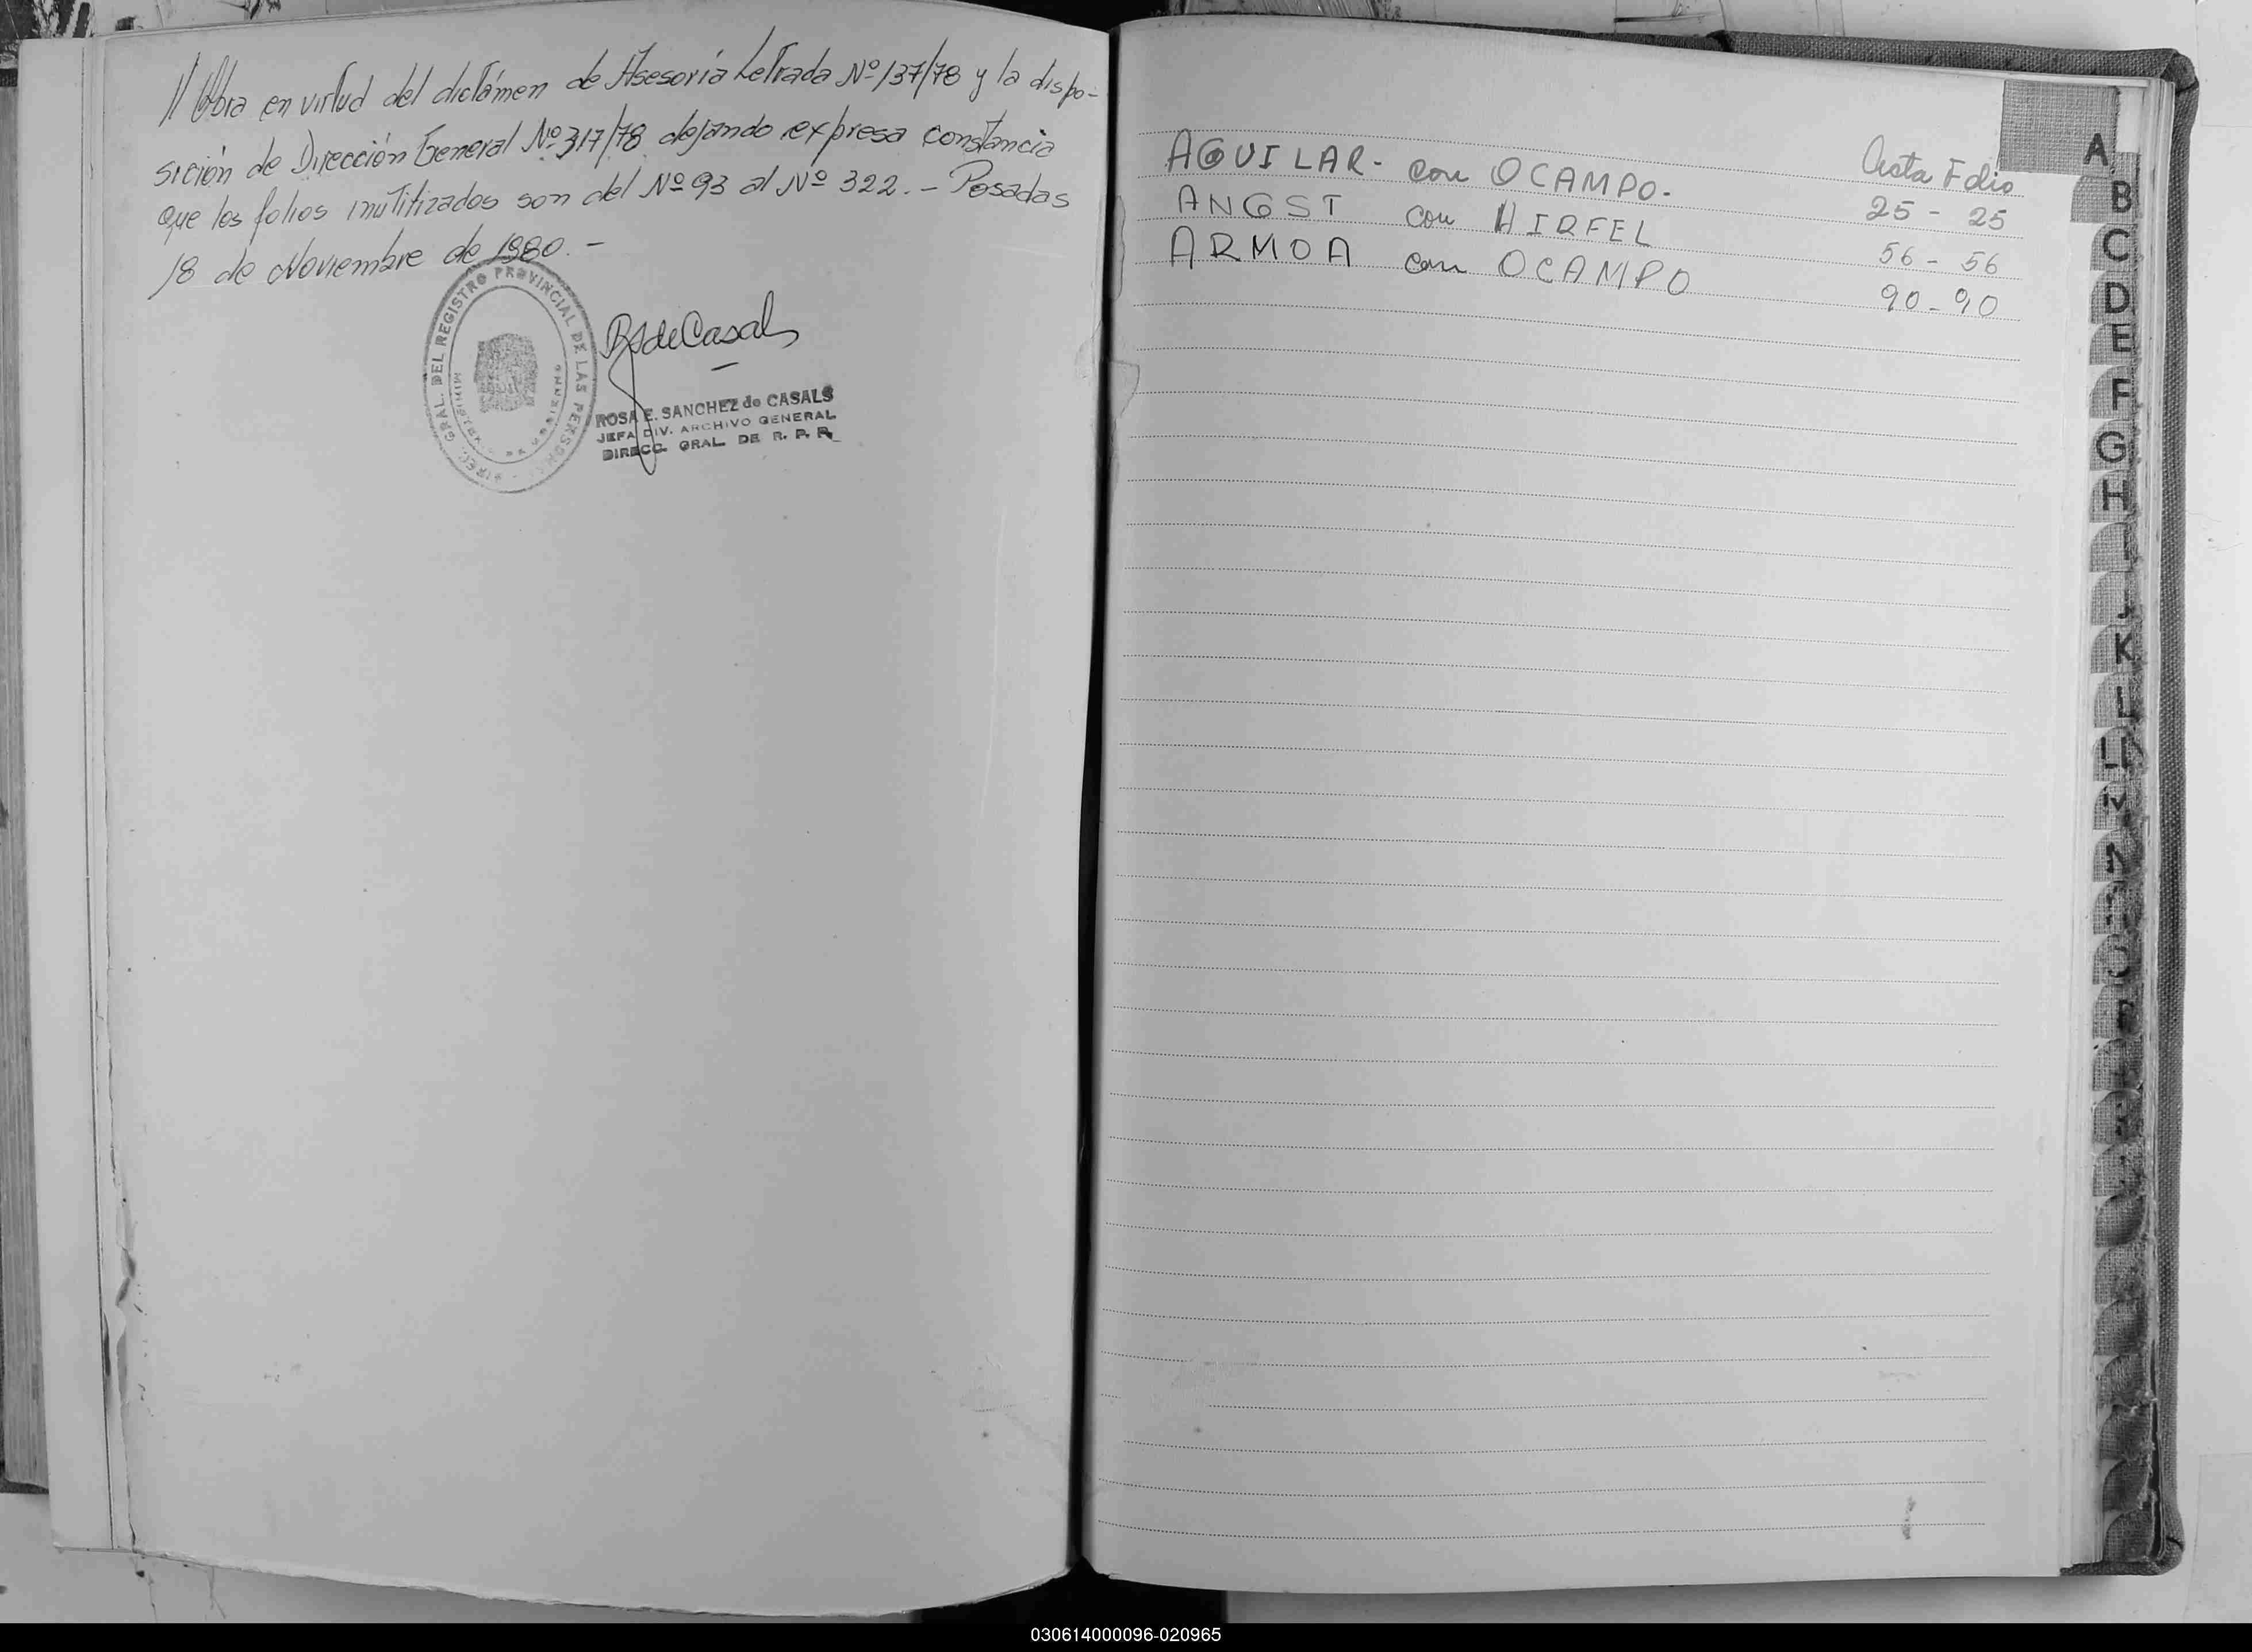 // Obra en virtud del dictámen de Asesoría Letrada Nº 137/78 y la dispo-
sición de Dirección General Nº 317/78 dejando expresa constancia
que los folios inutilizados son del Nº 93 al Nº 322.- Posadas
18 de Noviembre de 1980.-
GRAL. DEL REGISTRO PROVINCIAL DE LAS PERSONAS
MISIONES
deCasals
ROSA E. SANCHEZ de CASALS
JEFA DIV. ARCHIVO GENERAL
DIRECC. GRAL. DE R. P. P.
Acta Folio
AGUILAR- con OCAMPO. 25 - 25
ANGST con HIRFEL 56 - 56
ARMOA con OCAMPO 90 - 90
A
B
C
D
E
F
G
H
I
J
K
L
LL
M
030614000096-020965